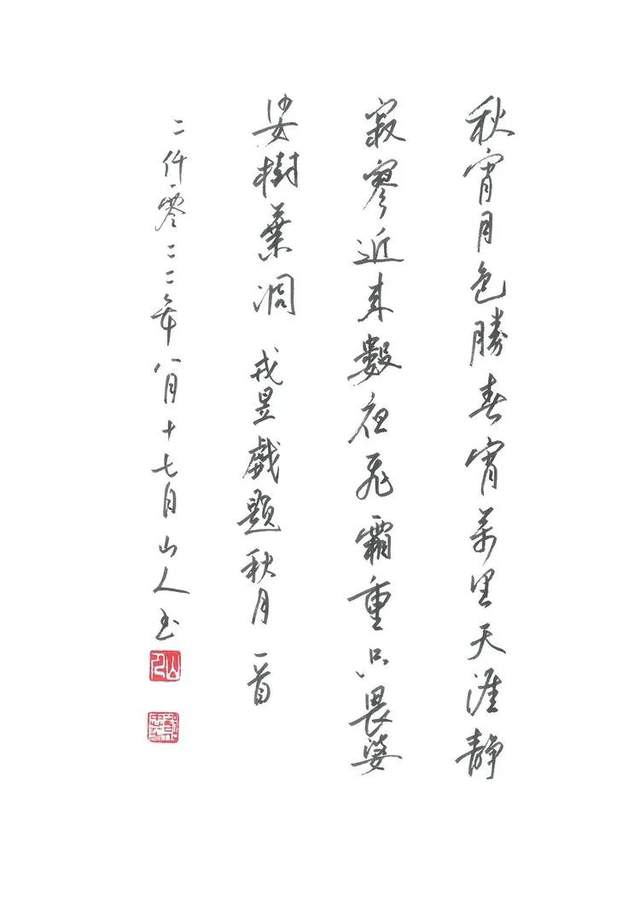 秋宵月色勝春宵萬里天涯静
寂寥近来數夜飛霜重只畏婆
娑樹葉凋 戎昱戲題秋月一首
二仟零二二年八月十七日山人书
山人